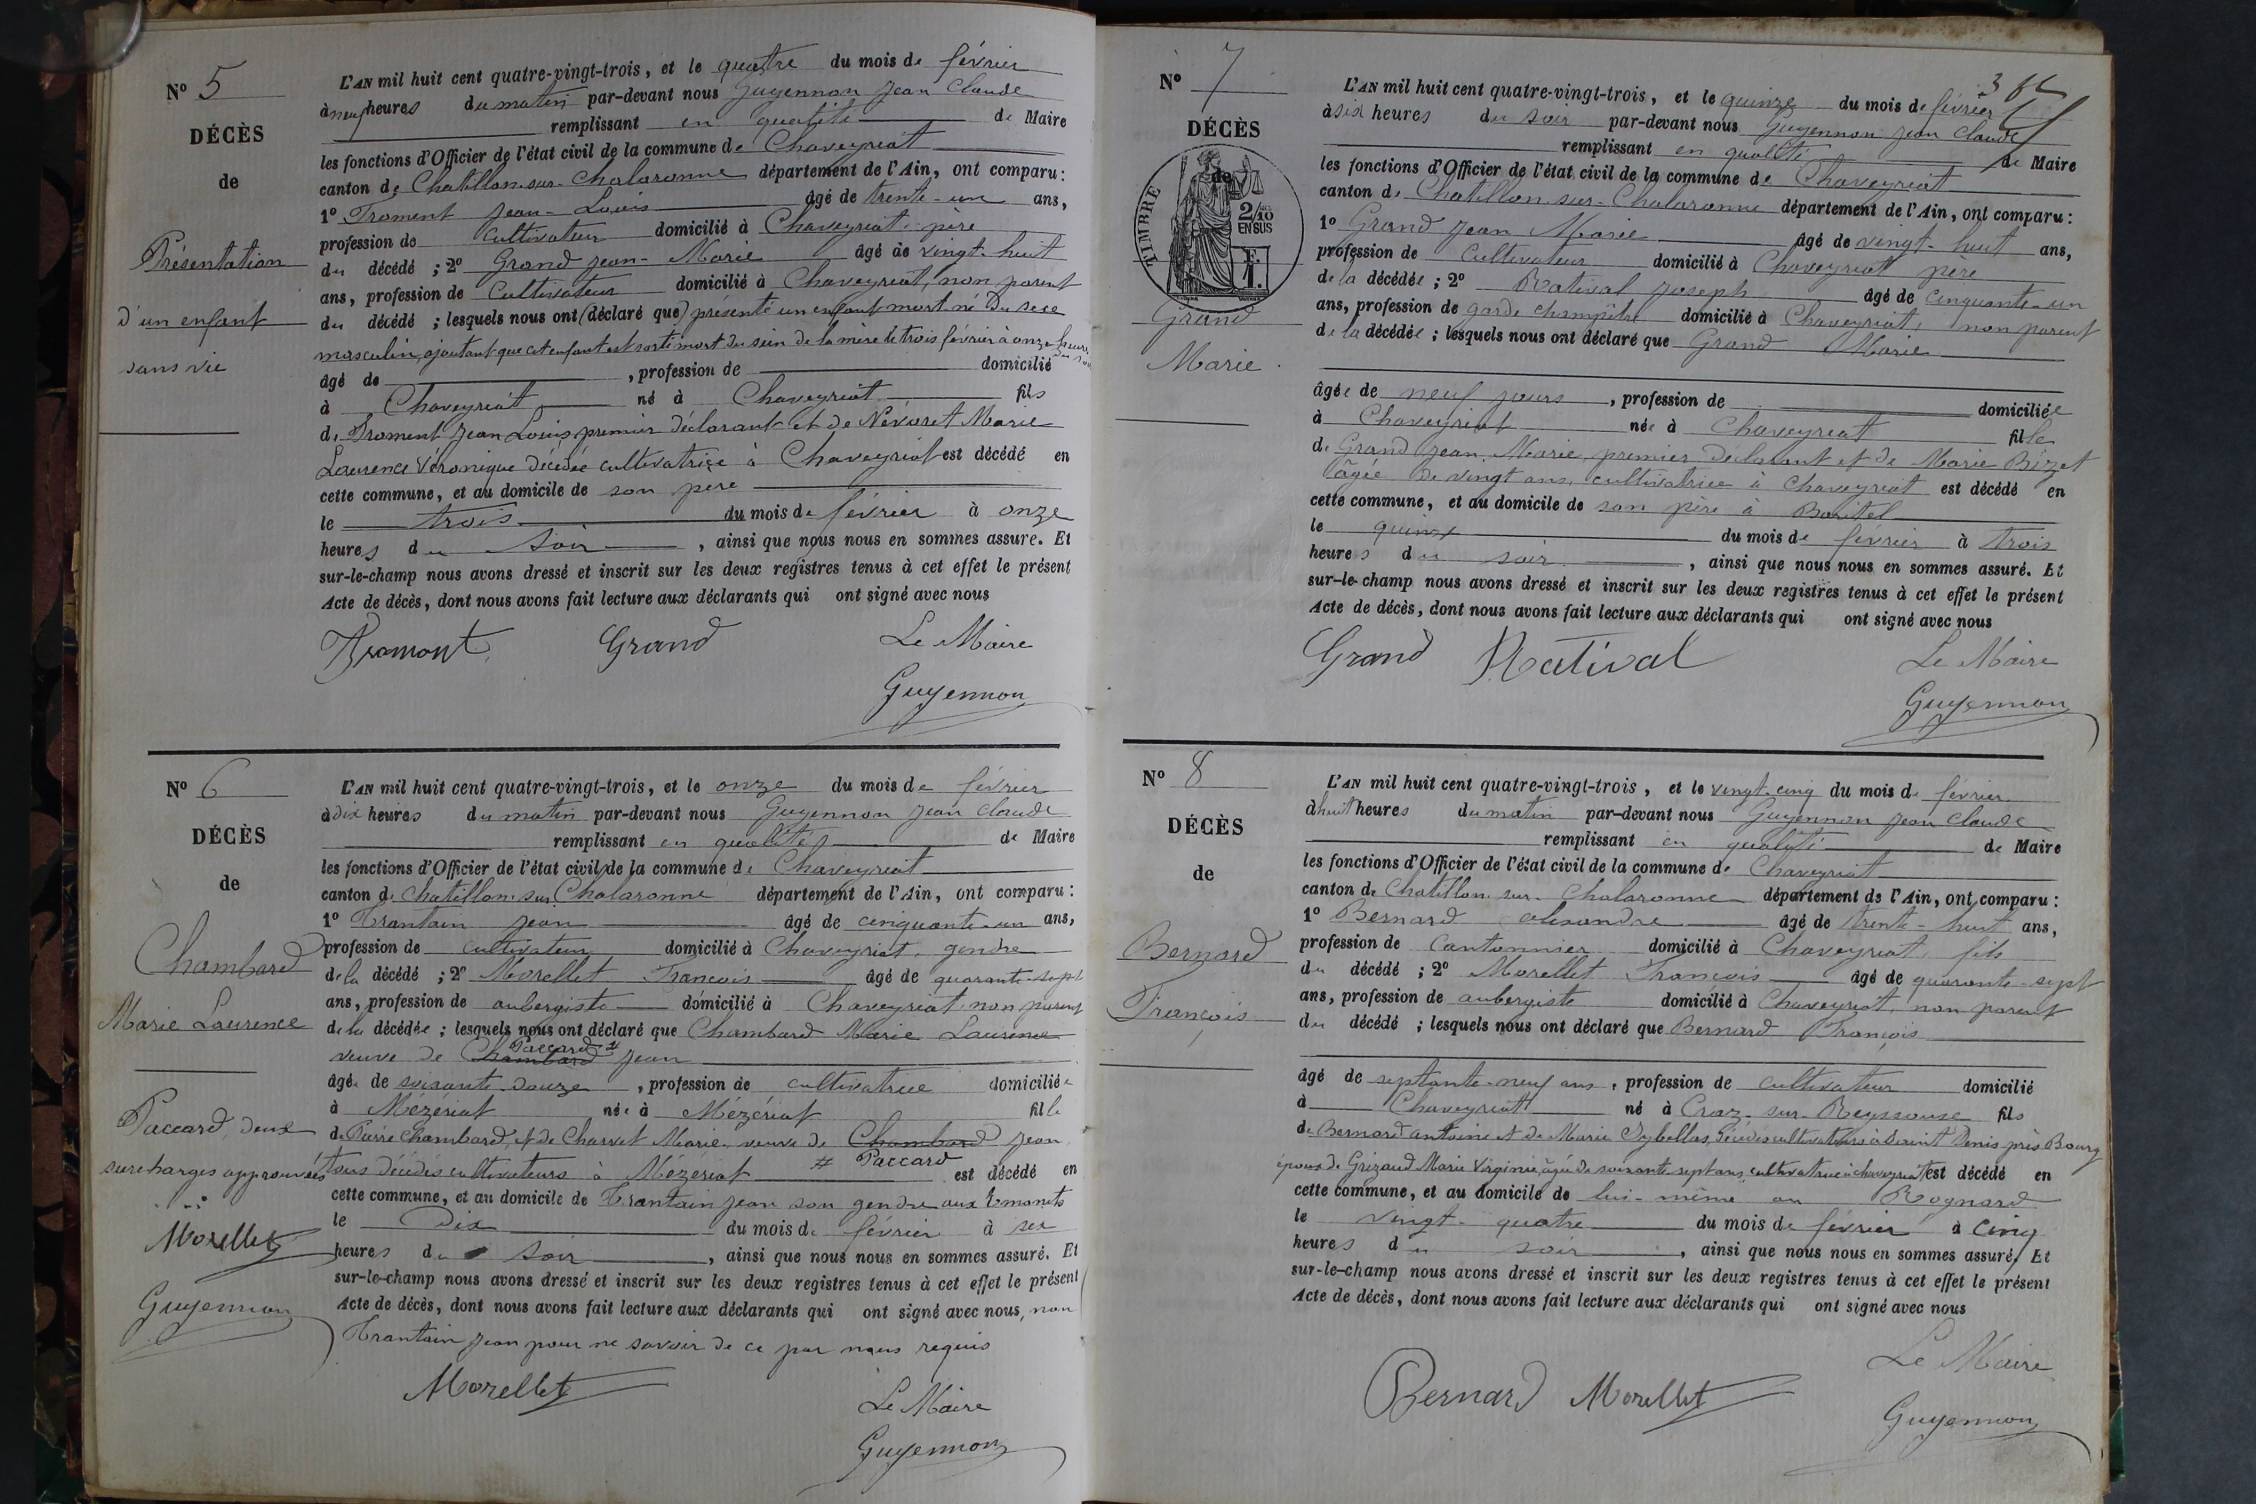 N° 5
DÉCÈS
de
Présentation
d'un enfant
sans vie
L'AN mil huit cent quatre-vingt-trois, et le quatre du mois de février
à neuf heures du matin par-devant nous Guyennon Jean Claude
remplissant en qualité de Maire
les fonctions d'Officier de l'état civil de la commune de Chaveyriat
canton de Chatillon-sur-Chalaronne département de l'Ain, ont comparu :
1° Froment Jean-Louis âgé de trente-un ans,
profession de cultivateur domicilié à Chaveyriat, père
du décédé ; 2° Grand Jean-Marie âgé de vingt-huit
ans, profession de Cultivateur domicilié à Chaveyriat, non parent
du décédé ; lesquels nous ont (déclaré que) présenté un enfant mort né du sexe
masculin, ajoutant que cet enfant est sorti mort du sein de la mère le trois février à onze heures
du soir
âgé de , profession de domicilié
à Chaveyriat né à Chaveyriat fils
de Froment Jean Louis, premier déclarant et de Névoret Marie
Laurence Véronique décédée cultivatrice à Chaveyriat est décédé en
cette commune, et au domicile de son père
le trois du mois de février à onze
heures du soir , ainsi que nous nous en sommes assuré. Et
sur-le-champ nous avons dressé et inscrit sur les deux registres tenus à cet effet le présent
Acte de décès, dont nous avons fait lecture aux déclarants qui ont signé avec nous
Froment Grand Le Maire
Guyennon
N° 6
DÉCÈS
de
Chambard
Marie Laurence
Paccard, deux
surcharges approuvées
Morellet
Guyennon
L'AN mil huit cent quatre-vingt-trois, et le onze du mois de février
à dix heures du matin par-devant nous Guyennon Jean Claude
remplissant en qualité de Maire
les fonctions d'Officier de l'état civil de la commune de Chaveyriat
canton de Chatillon-sur Chalaronne département de l'Ain, ont comparu :
1° Trantain Jean âgé de cinquante-un ans,
profession de cultivateur domicilié à Chaveyriat, gendre
de la décédé ; 2° Morellet François âgé de quarante-sept
ans, profession de aubergiste domicilié à Chaveyriat, non parent
de la décédée ; lesquels nous ont déclaré que Chambard Marie Laurence
veuve de Chambard Paccard # Jean
âgée de soixante-douze , profession de cultivatrice domiciliée
à Mézériat née à Mézériat fille
de Pierre Chambard, et de Charvet Marie, veuve de Chambard Jean,
tous décédés cultivateurs à Mézériat # Paccard est décédé en
cette commune, et au domicile de Trantain Jean son gendre aux Emonets
le Dix du mois de février à six
heures du soir , ainsi que nous nous en sommes assuré. Et
sur-le-champ nous avons dressé et inscrit sur les deux registres tenus à cet effet le présent
Acte de décès, dont nous avons fait lecture aux déclarants qui ont signé avec nous, non
Trantain Jean pour ne savoir de ce par nous requis
Morellet Le Maire
Guyennon
N° 7
DÉCÈS
de
TIMBRE
2/10
EN SUS
F.
1.
Grand
Marie
L'AN mil huit cent quatre-vingt-trois, et le quinze du mois de février
à six heures du soir par-devant nous Guyennon Jean Claude
remplissant en qualité de Maire
les fonctions d'Officier de l'état civil de la commune de Chaveyriat
canton de Chatillon-sur-Chalaronne département de l'Ain, ont comparu :
1° Grand Jean Marie âgé de vingt-huit ans,
profession de Cultivateur domicilié à Chaveyriat père
de la décédée ; 2° Ratival Joseph âgé de cinquante-un
ans, profession de garde champêtre domicilié à Chaveyriat, non parent
de la décédée ; lesquels nous ont déclaré que Grand Marie
âgée de neuf jours , profession de domiciliée
à Chaveyriat née à Chaveyriat fille
de Grand Jean, Marie, premier declarant et de Marie Bizet
âgée de vingt ans, cultivatrice à Chaveyriat est décédé en
cette commune, et au domicile de son père à
le quinze du mois de février à trois
heures du soir , ainsi que nous nous en sommes assuré. Et
sur-le-champ nous avons dressé et inscrit sur les deux registres tenus à cet effet le présent
Acte de décès, dont nous avons fait lecture aux déclarants qui ont signé avec nous
Grand Ratival Le Maire
Guyennon
N° 8
DÉCÈS
de
Bernard
François
L'AN mil huit cent quatre-vingt-trois, et le vingt-cinq du mois de février
à huit heures du matin par-devant nous Guyennon Jean Claude
remplissant en qualité de Maire
les fonctions d'Officier de l'état civil de la commune de Chaveyriat
canton de Chatillon-sur-Chalaronne département de l'Ain, ont comparu :
1° Bernard alexandre âgé de trente-huit ans,
profession de Cantonnier domicilié à Chaveyriat, fils
du décédé ; 2° Morellet François âgé de quarante-sept
ans, profession de aubergiste domicilié à Chaveyriat, non parent
du décédé ; lesquels nous ont déclaré que Bernard François
âgé de septante-neuf ans , profession de cultivateur domicilié
à Chaveyriat né à Craz-sur-Reyssouse fils
de Bernard antoine et de Marie Sybellas, décédés cultivateurs à Saint Denis près Bourg
époux de Grizaud Marie Virginie, âgée de soixante-sept ans, cultivatrice à chaveyriat est décédé en
cette commune, et au domicile de lui-même au Rognard
le vingt-quatre du mois de février à cinq
heures du soir , ainsi que nous nous en sommes assuré. Et
sur-le-champ nous avons dressé et inscrit sur les deux registres tenus à cet effet le présent
Acte de décès, dont nous avons fait lecture aux déclarants qui ont signé avec nous
Bernard Morellet Le Maire
Guyennon